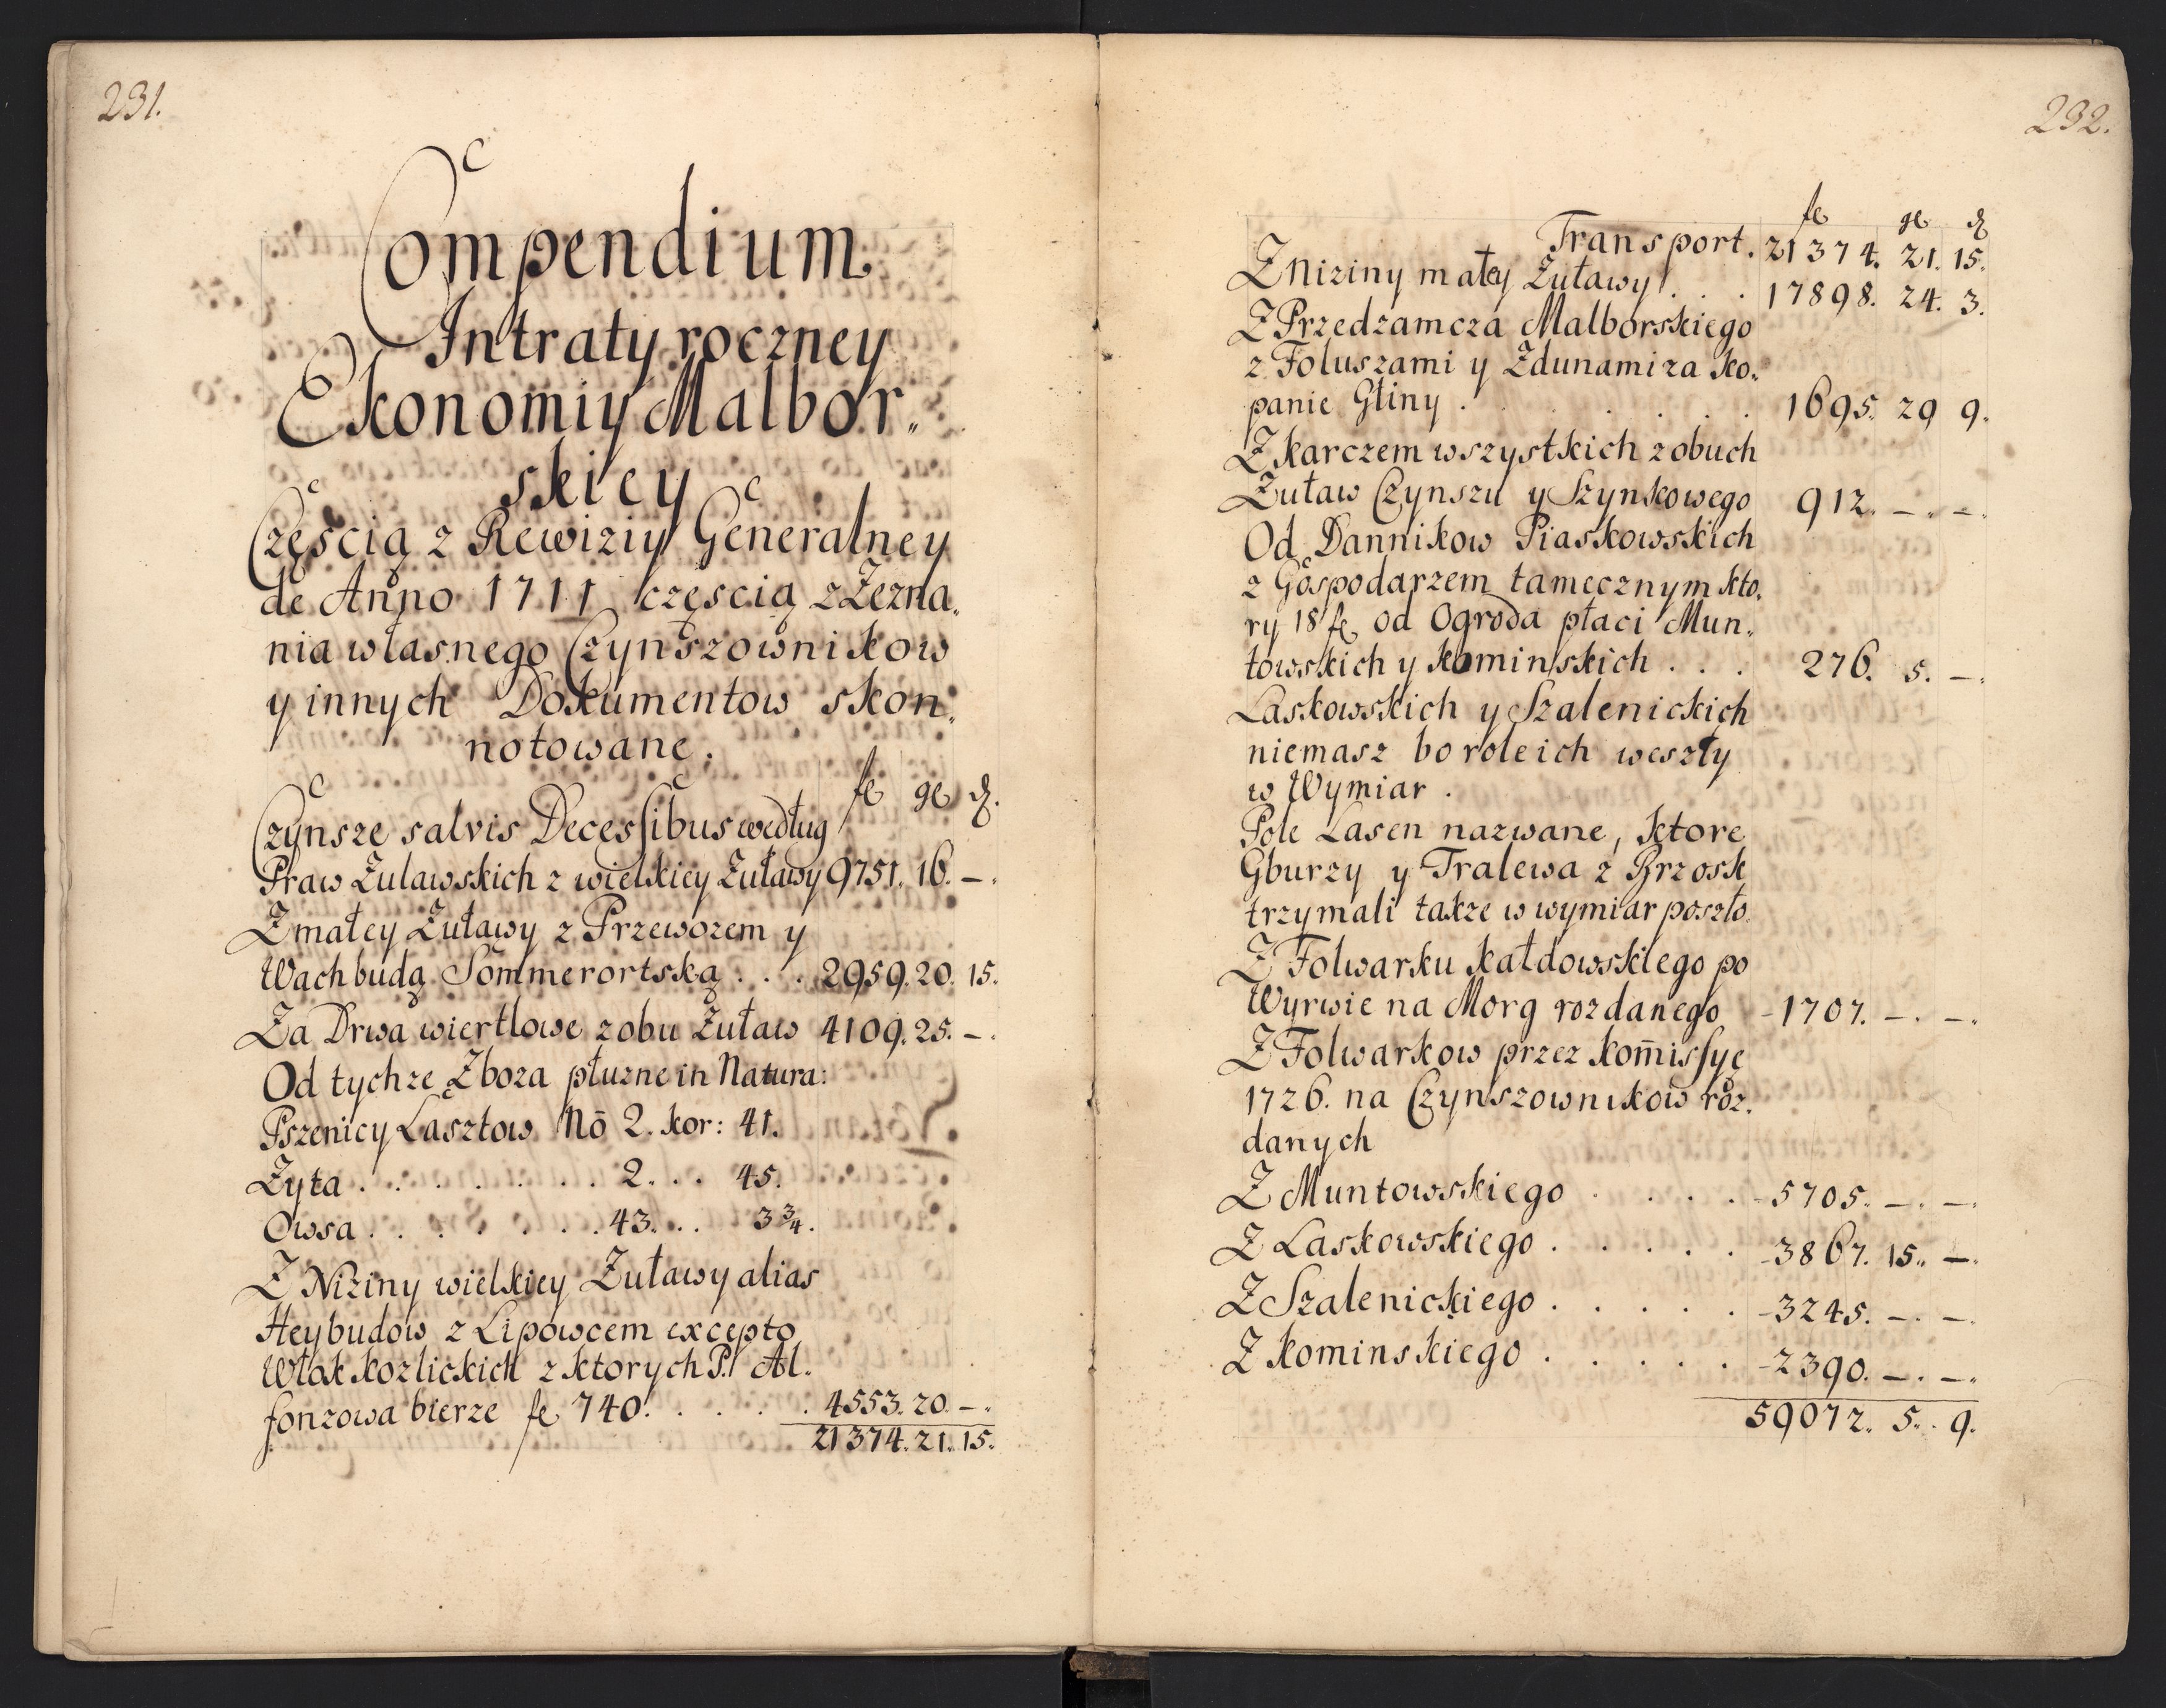 231.
Compendium
Intraty roczney
Ekonomiy Malbor„
skiey
Częscią z Rewiziy Generalney
de Anno 1711 częscią z Zezna„
nia własnego Czynszownikow
y innych Dokumentow skon„
notowane.
fl gl d.
Czynsze salvis Decessibus według
Praw Zulawskich z wielkiey Żuławy 9751. 16. –.
Z małey Żuławy z Przewozem y
Wachbudą Sommerortską . . . 2959. 20. 15.
Za Drwa wiertlowe z obu Żuław 4109. 25. –.
Od tychze Zboza płuzne in Natura:
Pszenicy Lasztow Nō 2. kor: 41.
Żyta . . . . . . . 2. . . 45.
Owsa . . . . . . . 43. . . 3¾.
Z Niziny wielkiey Żuławy alias
Heybudow z Lipowcem excepto
Włok kozlickich z ktorych P. Al„
fonzowa bierze fl 740. . . . . 4553. 20. –.
21374. 21. 15.
232.
fl gl d
Transport. 21374. 21. 15.
Z Niziny małey Żuławy . . . 17898. 24. 3.
Z Przedzamcza Malborskiego
z Foluszami y Zdunami za ko„
panie Gliny . . . . . . . 1695. 29 9.
Z karczem wszystkich z obuch
Żuław Czynszu y Szynkowego 912. –. –.
Od Dannikow Piaskowskich
z Gospodarzem tamecznym kto„
ry 18 fl od Ogroda płaci Mun„
towskich y kominskich . . . 276. 5. –.
Laskowskich y Szalenickich
niemasz bo role ich weszły
w Wymiar .
Pole Lasen nazwane, ktore
Gburzy y Tralewa z Brzosk
trzymali także w wymiar poszło.
Z Folwarku kałdowskiego po
Wyrwie na Morg rozdanego - 1707. –. –.
Z Folwarkow przez kom̄issyę
1726. na Czynszownikow roz„
danych
Z Muntowskiego . . . . - 5705. –. –.
Z Laskowskiego . . . . . - 3867. 15. –.
Z Szalenickiego . . . . . - 3245. –. –.
Z kominskiego . . . . . - 2390. –. –.
59072. 5. 9.